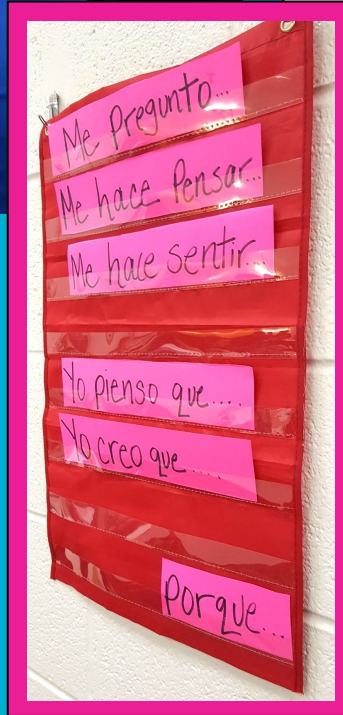 Me Pregunto...
Me hace Pensar...
Me hace sentir...
Yo pienso que....
Yo creo que....
Porque...